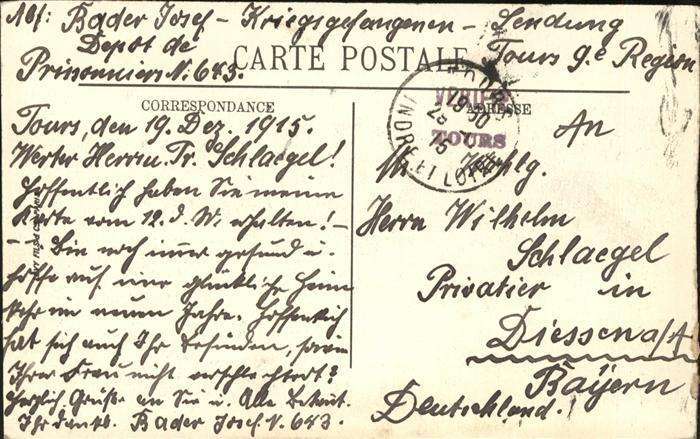 Abs: Bader Josef - Kriegsgefangenen - Sendung
Depot de
Prisonniers N. 643.
Tours 9.e Region
CARTE POSTALE
CORRESPONDANCE
ADRESSE
Tours, den 19. Dez. 1915.
Werter Herr u. Fr. Schlaegel!
Hoffentlich haben Sie meine
Karte vom 12. d. M. erhalten! -
- Bin noch imer gesund u.
hoffe auf eine glückliche Heim
kehr im neuen Jahre. Hoffentlich
hat sich auch Ihr Befinden, sowie
Ihrer Frau nicht verschlechtert?
Herzlich. Grüße an Sie u. Alle Bekant.
Ihr dankb. Bader Josef. N. 643.
TOURS
INDRE ET LOIRE
An
Herrn Wilhelm
Schlaegel
Privatier in
Diessen a/A
Bayern
Deutschland.